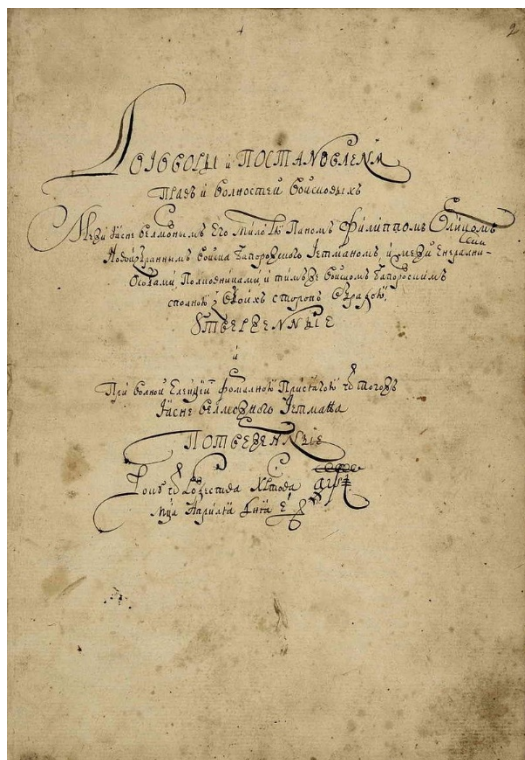 2
Договоры и Постановленя
Правъ и волностей войсковыхъ
Межи Ясне велможнымъ Его Милостю Паномъ Филиппомъ Орликомъ
Новоизбраннымъ войска Запорожского Гетманомъ, и межи Енерални-
Особами, Полковниками и тимъже войскомъ Запорожскимъ
сполною з обоихъ сторонъ обрадою
Утверженные
и
При волной Елекцiй формалною Присягою ѿ тогожъ
Ясне велможного Гетмана
Потверженные
Року ѿ Рождества Христова
Мца Априля дня е҃